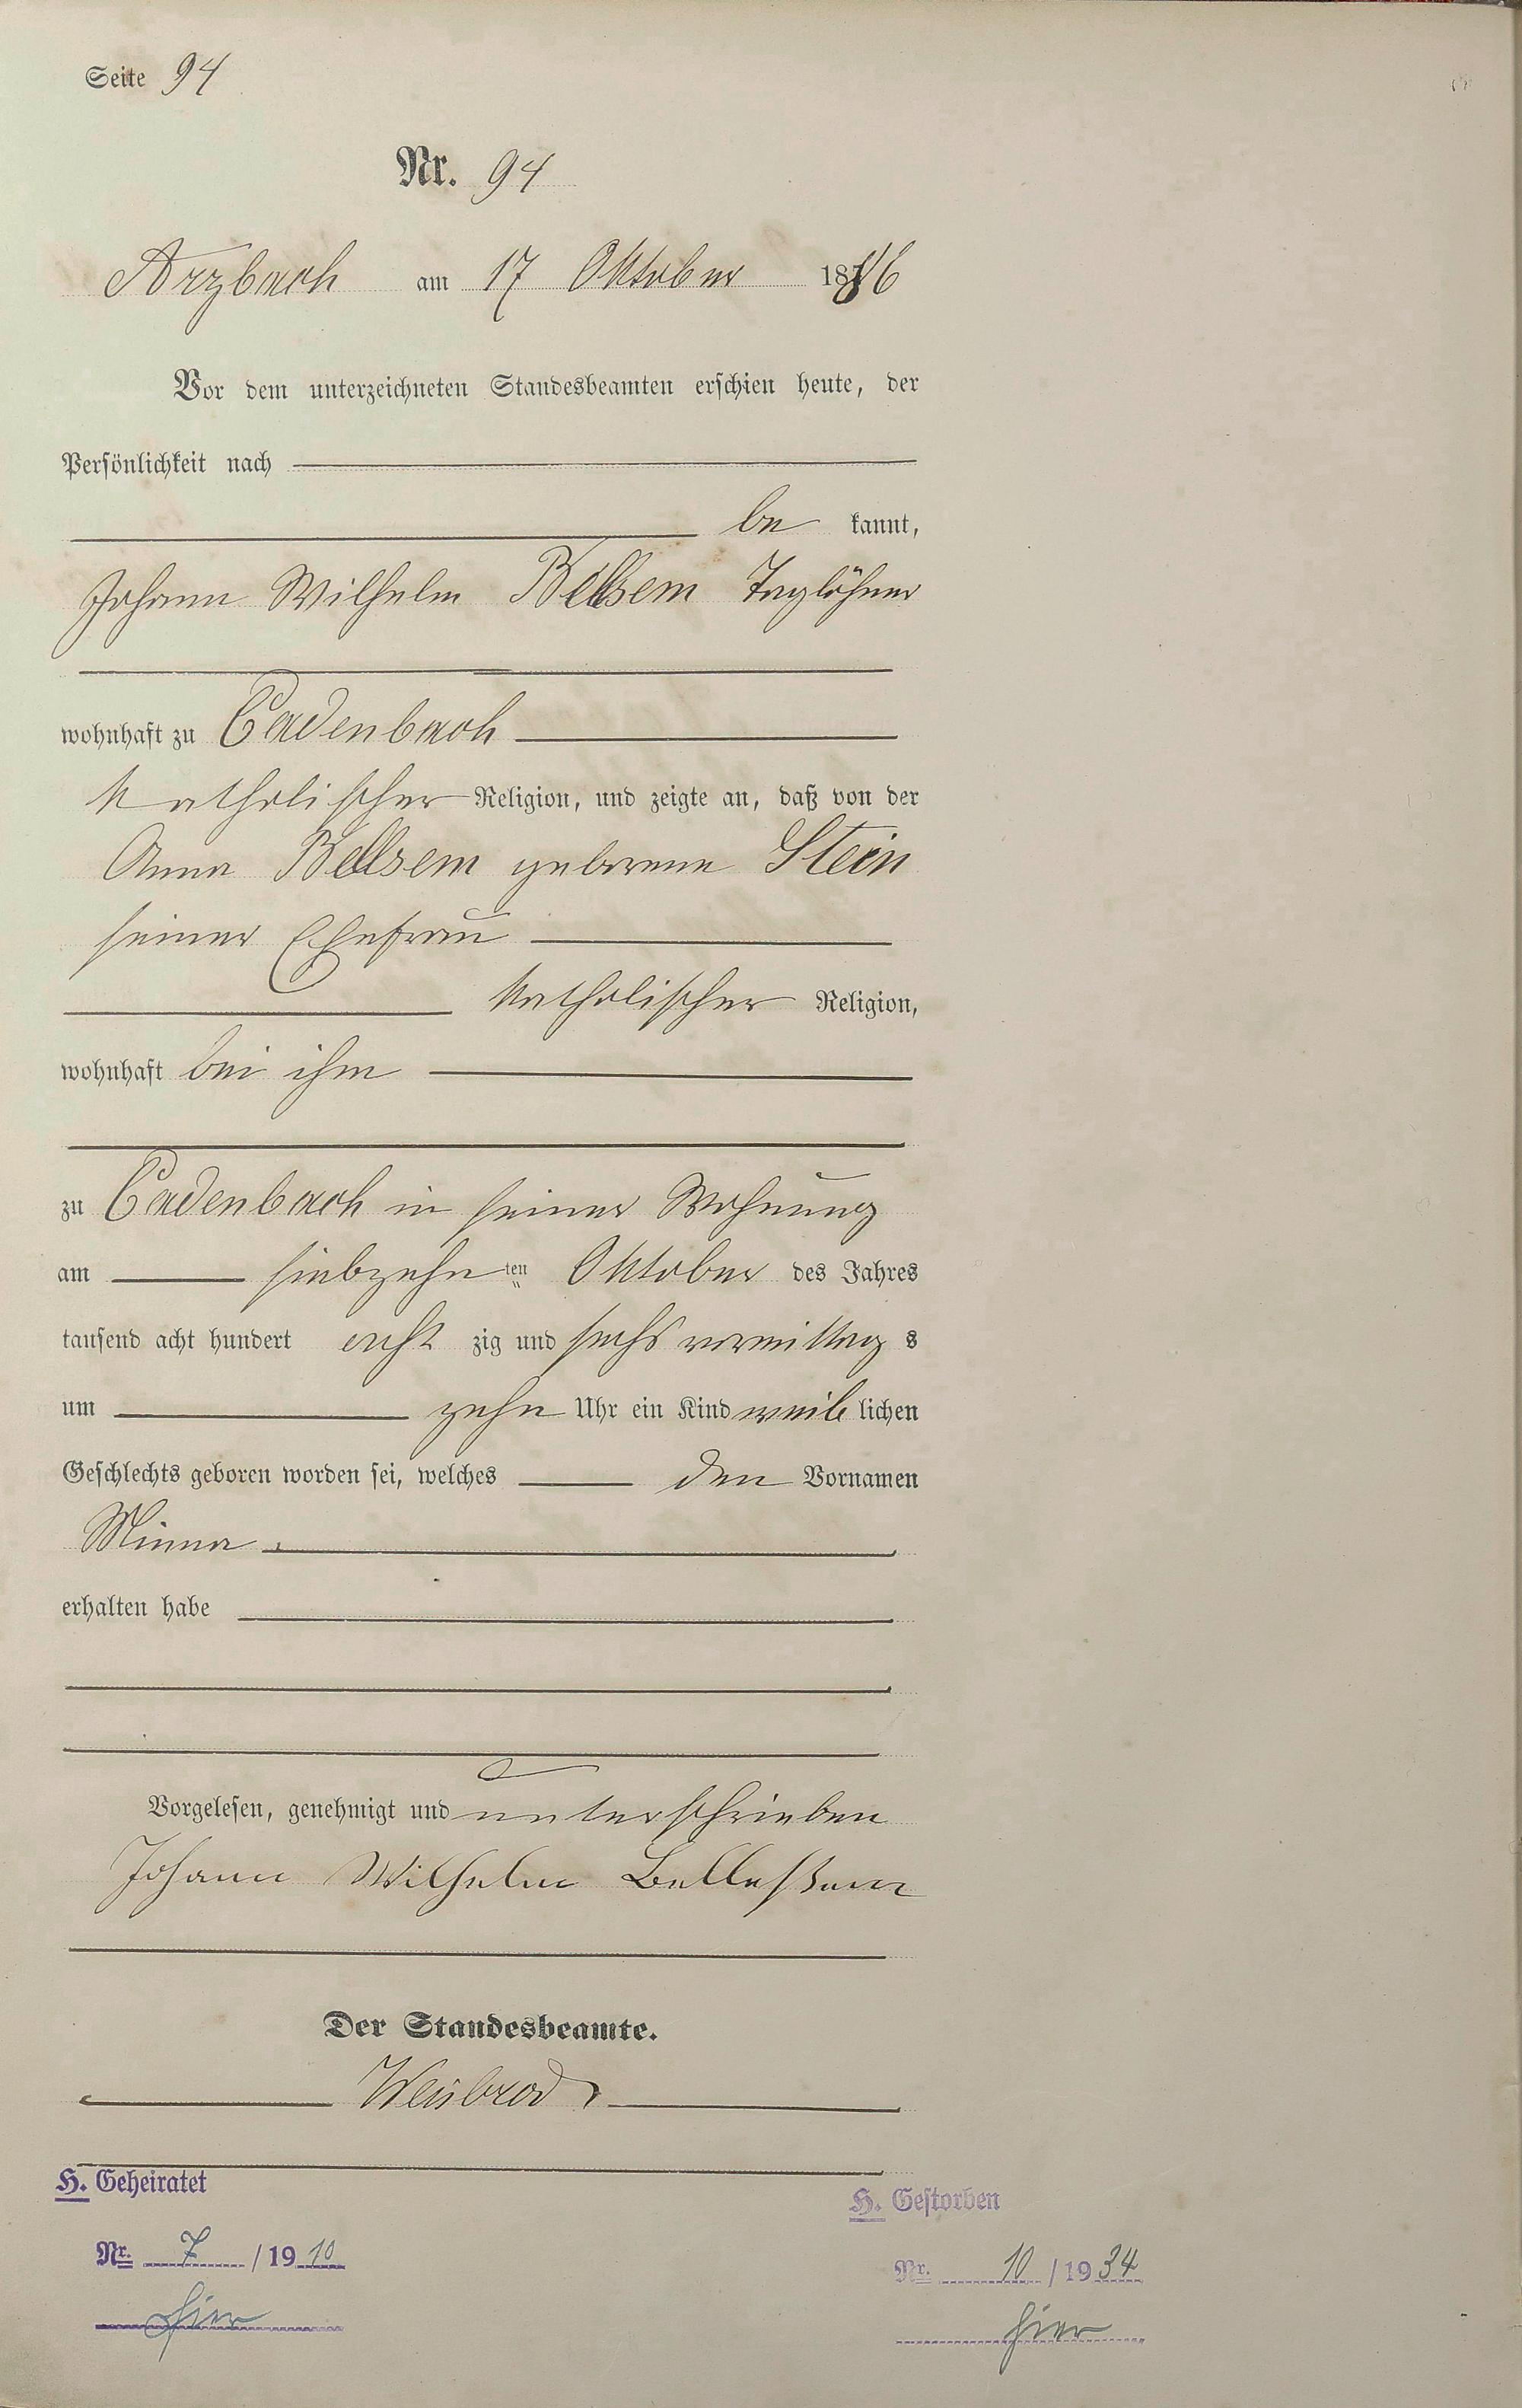 Seite 94
Nr. 94
Arzbach am 17 Oktober 1886
Vor dem unterzeichneten Standesbeamten erschien heute, der
Persönlichkeit nach
be kannt,
Johann Wilhelm Bellsem Taglöhner
wohnhaft zu Cadenbach
katholischer Religion, und zeigte an, daß von der
Anna Bellsem geborene Stein
seiner Ehefrau
katholischer Religion,
wohnhaft bei ihm
zu Cadenbach in seiner Wohnung
am siebzehnten Oktober des Jahres
tausend acht hundert acht zig und sechs vormittag s
um zehn Uhr ein Kind weib lichen
Geschlechts geboren worden sei, welches den Vornamen
Minna
erhalten habe
Vorgelesen, genehmigt und unterschrieben
Johann Wilhelm Belleßem
Der Standesbeamte.
Weisbrod
H. Geheiratet
Nr. 7 / 19 10
hier
H. Gestorben
Nr. 10 / 19 34
hier